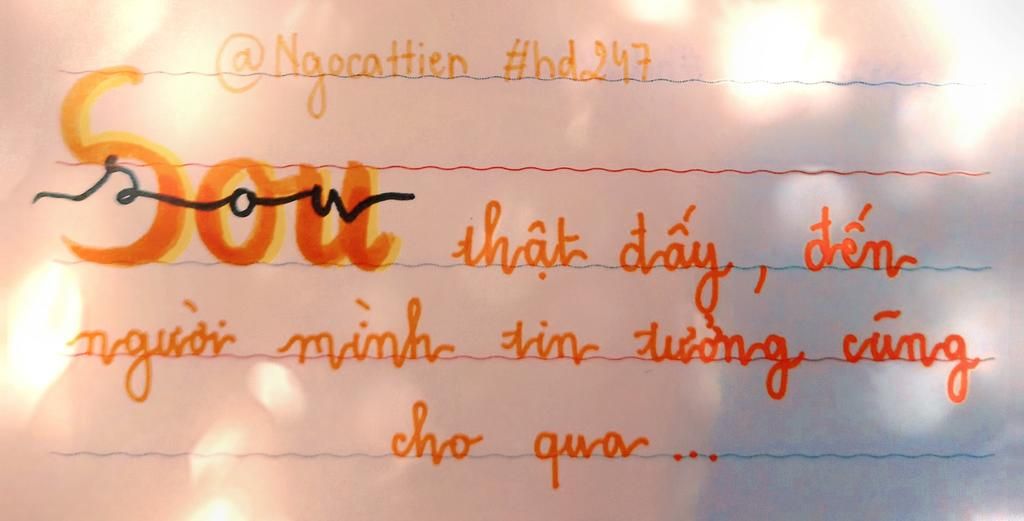 @Ngocattien #hd247
Sou
sou thật đấy, đến
người mình tin tưởng cũng
cho qua ...